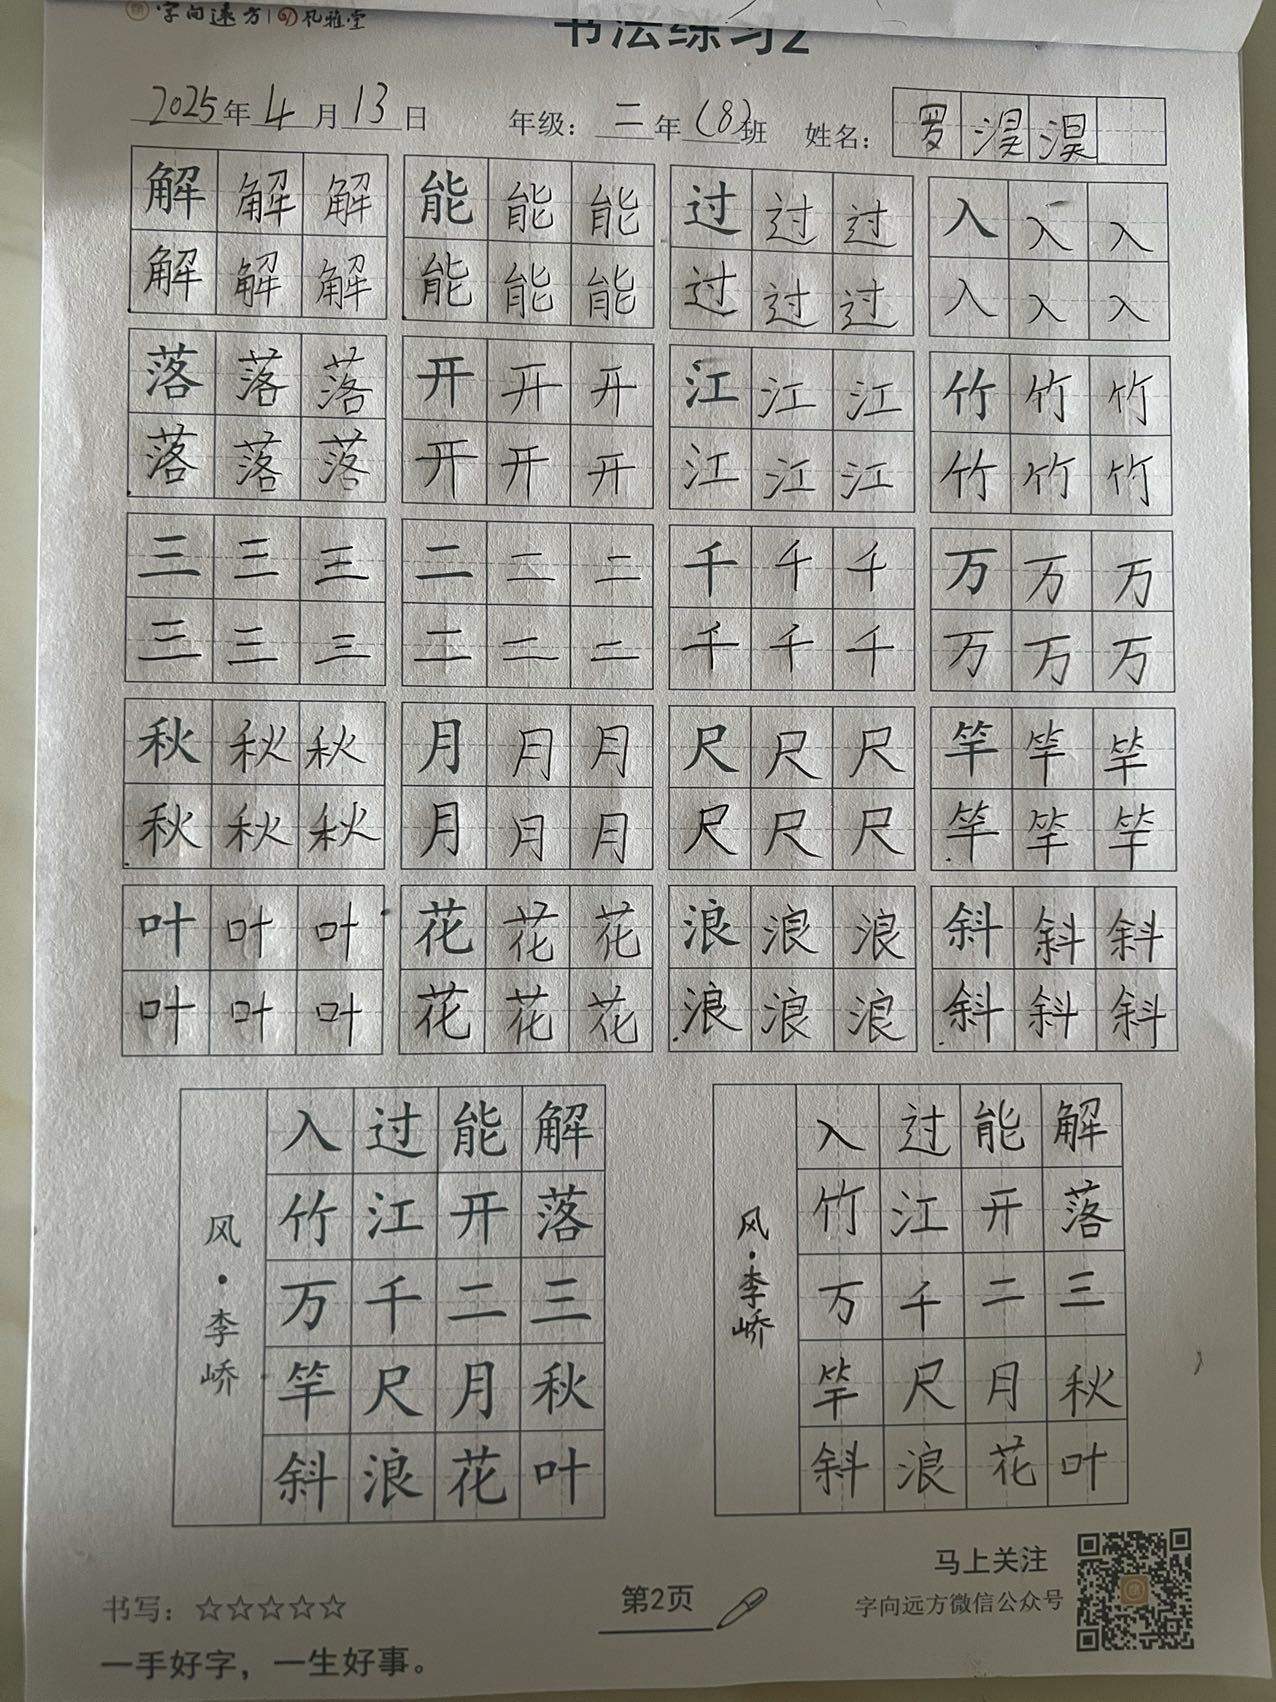 字向远方 | 风雅堂
书法练习2
2025年4月13日 年级：二年(8)班 姓名：罗淏淏
解解解 能能能 过过过 入入入
解解解 能能能 过过过 入入入
落落落 开开开 江江江 竹竹竹
落落落 开开开 江江江 竹竹竹
三三三 二二二 千千千 万万万
三三三 二二二 千千千 万万万
秋秋秋 月月月 尺尺尺 竿竿竿
秋秋秋 月月月 尺尺尺 竿竿竿
叶叶叶 花花花 浪浪浪 斜斜斜
叶叶叶 花花花 浪浪浪 斜斜斜
解落三秋叶
能开二月花
过江千尺浪
入竹万竿斜
风·李峤
解落三秋叶
能开二月花
过江千尺浪
入竹万竿斜
风·李峤
书写：☆☆☆☆☆
一手好字，一生好事。
第2页
马上关注
字向远方微信公众号